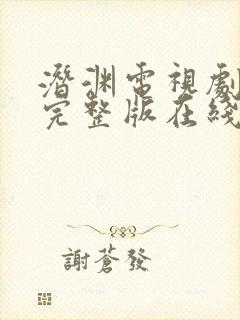 潛淵電視劇
完整版在綫
謝蒼發